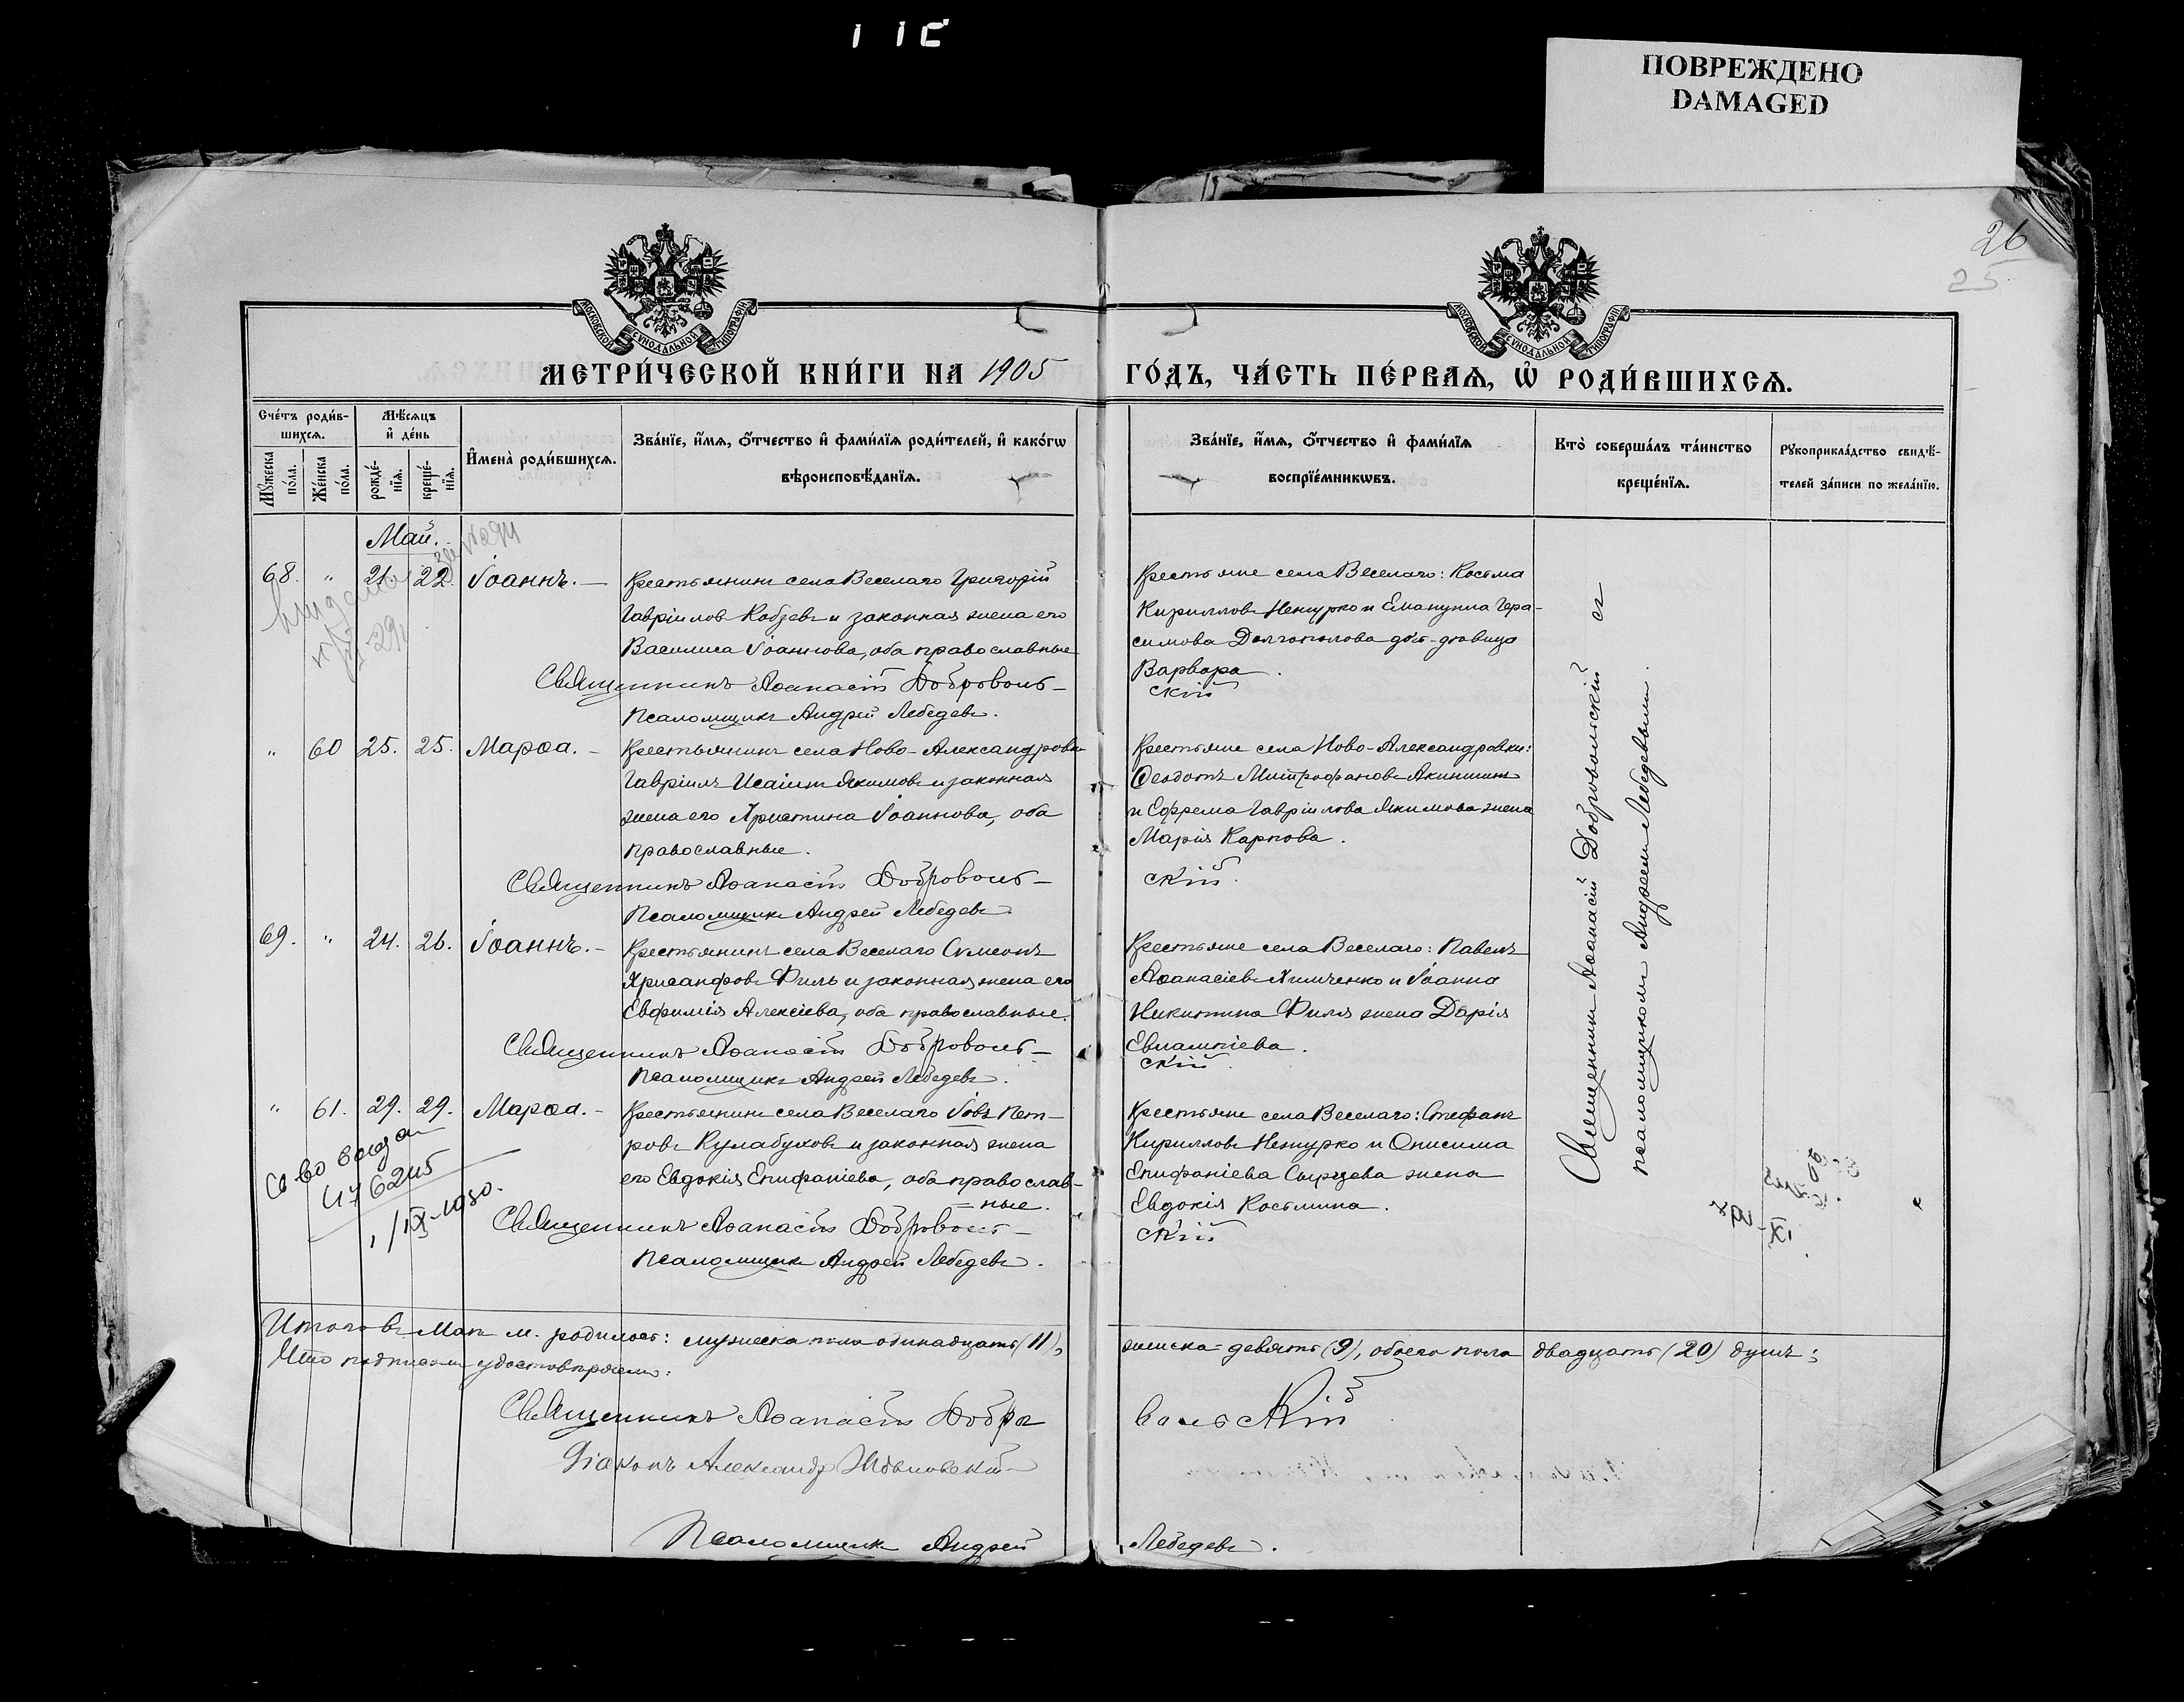 ПОВРЕЖДЕНО
DAMAGED
26
25
МОСКОВСКОЙ СѴНОДАЛЬНОЙ ТИПОГРАФІИ
МОСКОВСКОЙ СѴНОДАЛЬНОЙ ТИПОГРАФІИ
МЕТРИ́ЧЕСКОЙ КНИ́ГИ НА 1905
ГО́ДЪ, ЧА́СТЬ ПЕ́РВАѦ, Ѡ҆ РОДИ́ВШИХСѦ.
Сче́тъ роди́вшихсѧ.
Мꙋ́жеска по́ла.
Же́нска по́ла.
Мѣ́сѧцъ и҆ де́нь
рожде́нїѧ.
креще́нїѧ.
И҆мена̀ роди́вшихсѧ.
Зва́нїе, и҆́мѧ, ѻ҆́тчество и҆ фами́лїѧ роди́телей, и҆ како́гѡ
вѣроисповѣ́данїѧ.
Зва́нїе, и҆́мѧ, ѻ҆́тчество и҆ фами́лїѧ
воспрїе́мникѡвъ.
Кто̀ соверша́лъ та́инство
креще́нїѧ.
Рꙋкоприкла́дство свидѣ́-
телей за́писи по жела́нїю.
Май.
68. " 21. 22. Іоаннъ. —
Крестьянинъ села Веселаго Григорій
Гавріиловъ Кобзевъ и законная жена его
Василиса Іоаннова, оба православные
Священникъ Аѳанасій Доброволь-
Псаломщикъ Андрей Лебедевъ.
Крестьяне села Веселаго: Косма
Кирилловъ Нежурко и Емануила Гера-
симова Долгополова
Варвара.
скій
" 60 25. 25. Марѳа. -
Крестьянинъ села Ново-Александровки
Гавріилъ Исаіинъ Якимовъ и законная
жена его Христина Іоаннова, оба
православные.
Священникъ Аѳанасій Доброволь-
Псаломщикъ Андрей Лебедевъ.
Крестьяне села Ново-Александровки:
Ѳеодотъ Митрофановъ Акиншинъ
и Ефрема Гавріилова Якимова жена
Марія Карпова.
скій.
69. " 24. 26. Іоаннъ. -
Крестьянинъ села Веселаго Симеонъ
Хрисанфовъ Филь и законная жена его
Евфимія Алексіева, оба православные.
Священникъ Аѳанасій Доброволь-
Псаломщикъ Андрей Лебедевъ.
Крестьяне села Веселаго: Павелъ
Аѳанасіевъ Химченко и Іоанна
Никитина Филя жена Дарія
Евлампіева.
скій.
" 61. 29. 29. Марѳа. -
Крестьянинъ села Веселаго Іовъ Пет-
ровъ Кулабуховъ и законная жена
его Евдокія Епифаніева, оба православ-
=ные.
Священникъ Аѳанасій Доброволь-
Псаломщикъ Андрей Лебедевъ.
Крестьяне села Веселаго: Стефанъ
Кирилловъ Нежурко и Онисима
Епифаніева Сырцева жена
Евдокія Космина.
скій
476245
1/IX-1930.
Священникъ Аѳанасій Добровольскій съ
псаломщикомъ Андреемъ Лебедевымъ.
Итого въ Маѣ м. родилось: мужеска пола одинадцать (11),
женска девять (9), обоего пола двадцать (20) душъ;
Что подписомъ удостовѣряемъ:
Священникъ Аѳанасій Добро
вольскій
Діаконъ Александръ
Псаломщикъ Андрей
Лебедевъ.